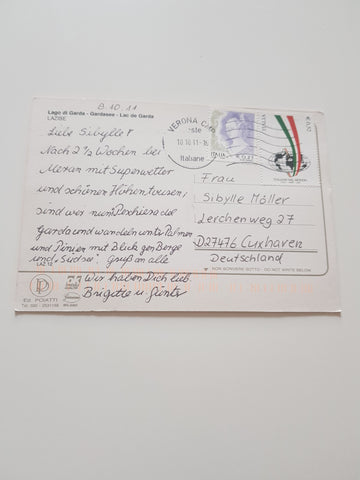 8.10.11
Lago di Garda - Gardasee - Lac de Garda
LAZISE
Liebe Sibylle!
Nach 2½ Wochen bei
Meran mit Superwetter
und schönen Höhentouren,
sind wir nun Peschiera del
Garda und wandeln unter Palmen
und Pinien mit Blick gen Berge
und "Südsee". Gruß an alle
Wir haben Dich lieb.
Brigitte u. Günter
VERONA CMP
10.10.11-16
Italiane
ITALIA
ITALIA
Frau
Sibylle Möller
Lerchenweg 27
D27476 Cuxhaven
Deutschland
NON SCRIVERE SOTTO - DO NOT WRITE BELOW
LAZ 12
Ed. POIATTI